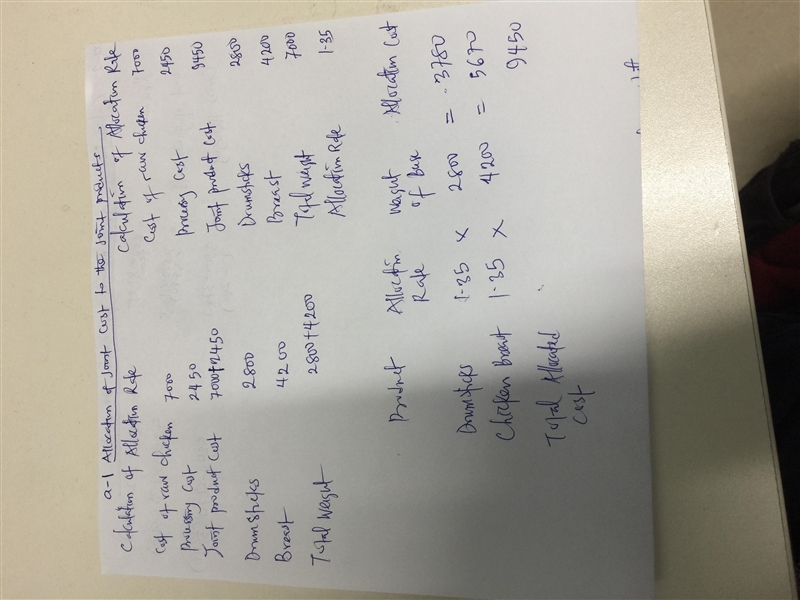 a-1 Allocation of Joint Cost to the Joint products
Calculation of Allocation Rate
Cost of raw chicken 7000
Processing Cost 2450
Joint product Cost 7000+2450
Drumsticks 2800
Breast 4200
Total Weight 2800+4200
Calculation of Allocation Rate
Cost of raw chicken 7000
Processing Cost 2450
Joint product Cost 9450
Drumsticks 2800
Breast 4200
Total Weight 7000
Allocation Rate 1.35
Product Allocation Rate Weight of Base Allocation Cost
Drumsticks 1.35 × 2800 = 3780
Chicken Breast 1.35 × 4200 = 5670
Total Allocated Cost 9450